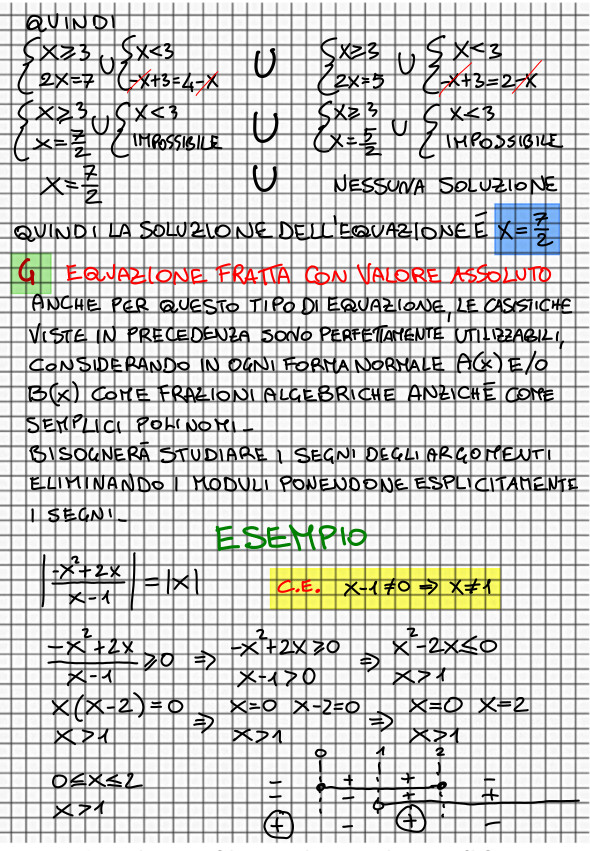 QUINDI
{x≥3 ∪ {x<3 ∪ {x≥3 ∪ {x<3
{2x=7 {-x+3=4-x {2x=5 {-x+3=2-x
{x≥3 ∪ {x<3 ∪ {x≥3 ∪ {x<3
{x=7/2 {IMPOSSIBILE {x=5/2 {IMPOSSIBILE
x=7/2 ∪ NESSUNA SOLUZIONE
QUINDI LA SOLUZIONE DELL'EQUAZIONE È x=7/2
G EQUAZIONE FRATTA CON VALORE ASSOLUTO
ANCHE PER QUESTO TIPO DI EQUAZIONE, LE CASISTICHE
VISTE IN PRECEDENZA SONO PERFETTAMENTE UTILIZZABILI,
CONSIDERANDO IN OGNI FORMA NORMALE A(x) E/O
B(x) COME FRAZIONI ALGEBRICHE ANZICHÉ COME
SEMPLICI POLINOMI_
BISOGNERÀ STUDIARE I SEGNI DEGLI ARGOMENTI
ELIMINANDO I MODULI PONENDONE ESPLICITAMENTE
I SEGNI_
ESEMPIO
|(-x²+2x)/(x-1)| = |x| C.E. x-1≠0 ⇒ x≠1
(-x²+2x)/(x-1) ≥0 ⇒ -x²+2x≥0 ⇒ x²-2x≤0
x-1>0 x>1
x(x-2)=0 ⇒ x=0 x-2=0 ⇒ x=0 x=2
x>1 x>1 x>1
0 1 2
0≤x≤2 - + + -
x>1 - - + +
+ - + -